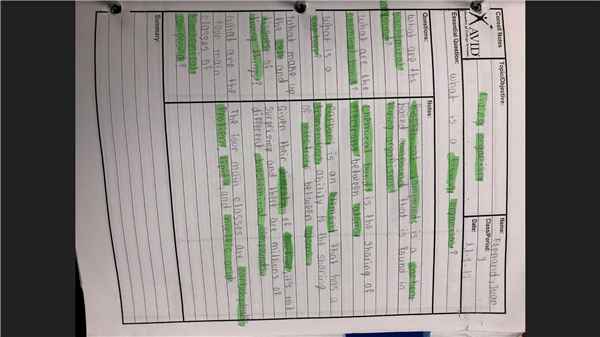 Cornell Notes
Topic/Objective:
Living organism
Name: Fernand, Juan
Class/Period: 3
Date: 11-2-17
AVID
Essential Question: What is a living organism?
Questions:
What are the
biochemical
compounds?
What are the
chemical bonds?
What is a
carbon?
What make up
the and
of
living things?
What are the
four main
classes of
biochemical
compounds?
Notes:
Biochemical compounds is a carbon
based compound that is found in
living organisms
chemical bonds is the sharing of
electrons between atoms
Carbon is an element that has a
tremendous ability to the sharing
of electrons between atoms.
Given their of, it's not
surprising and there are millions of
different biochemical compounds
The four main classes are carbohydrates
Proteins, lipids, and nucleic acids
Summary: